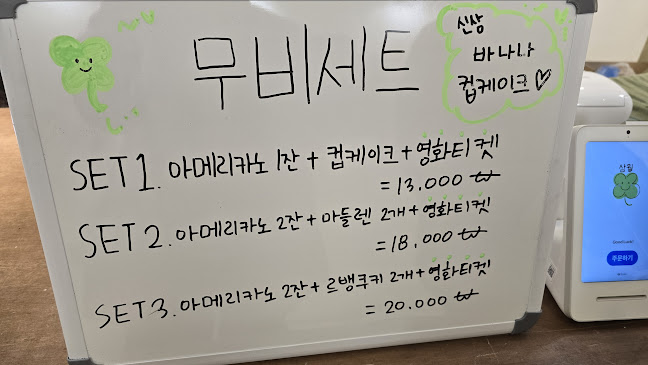 무비세트
신상
바나나
컵케이크♡
SET 1. 아메리카노 1잔 + 컵케이크 + 영화티켓
= 13,000 ₩
SET 2. 아메리카노 2잔 + 마들렌 2개 + 영화티켓
= 18,000 ₩
SET 3. 아메리카노 2잔 + 르뱅쿠키 2개 + 영화티켓
= 20.000 ₩
삼월
주문하기